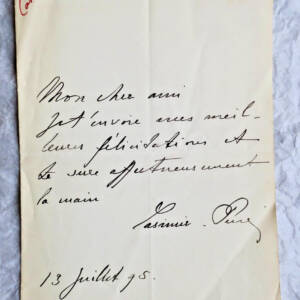 Mon cher ami
Je t'envoie mes meil-
leures félicitations et
te serre affectueusement
la main
Casimir-Perier
13 Juillet 95.